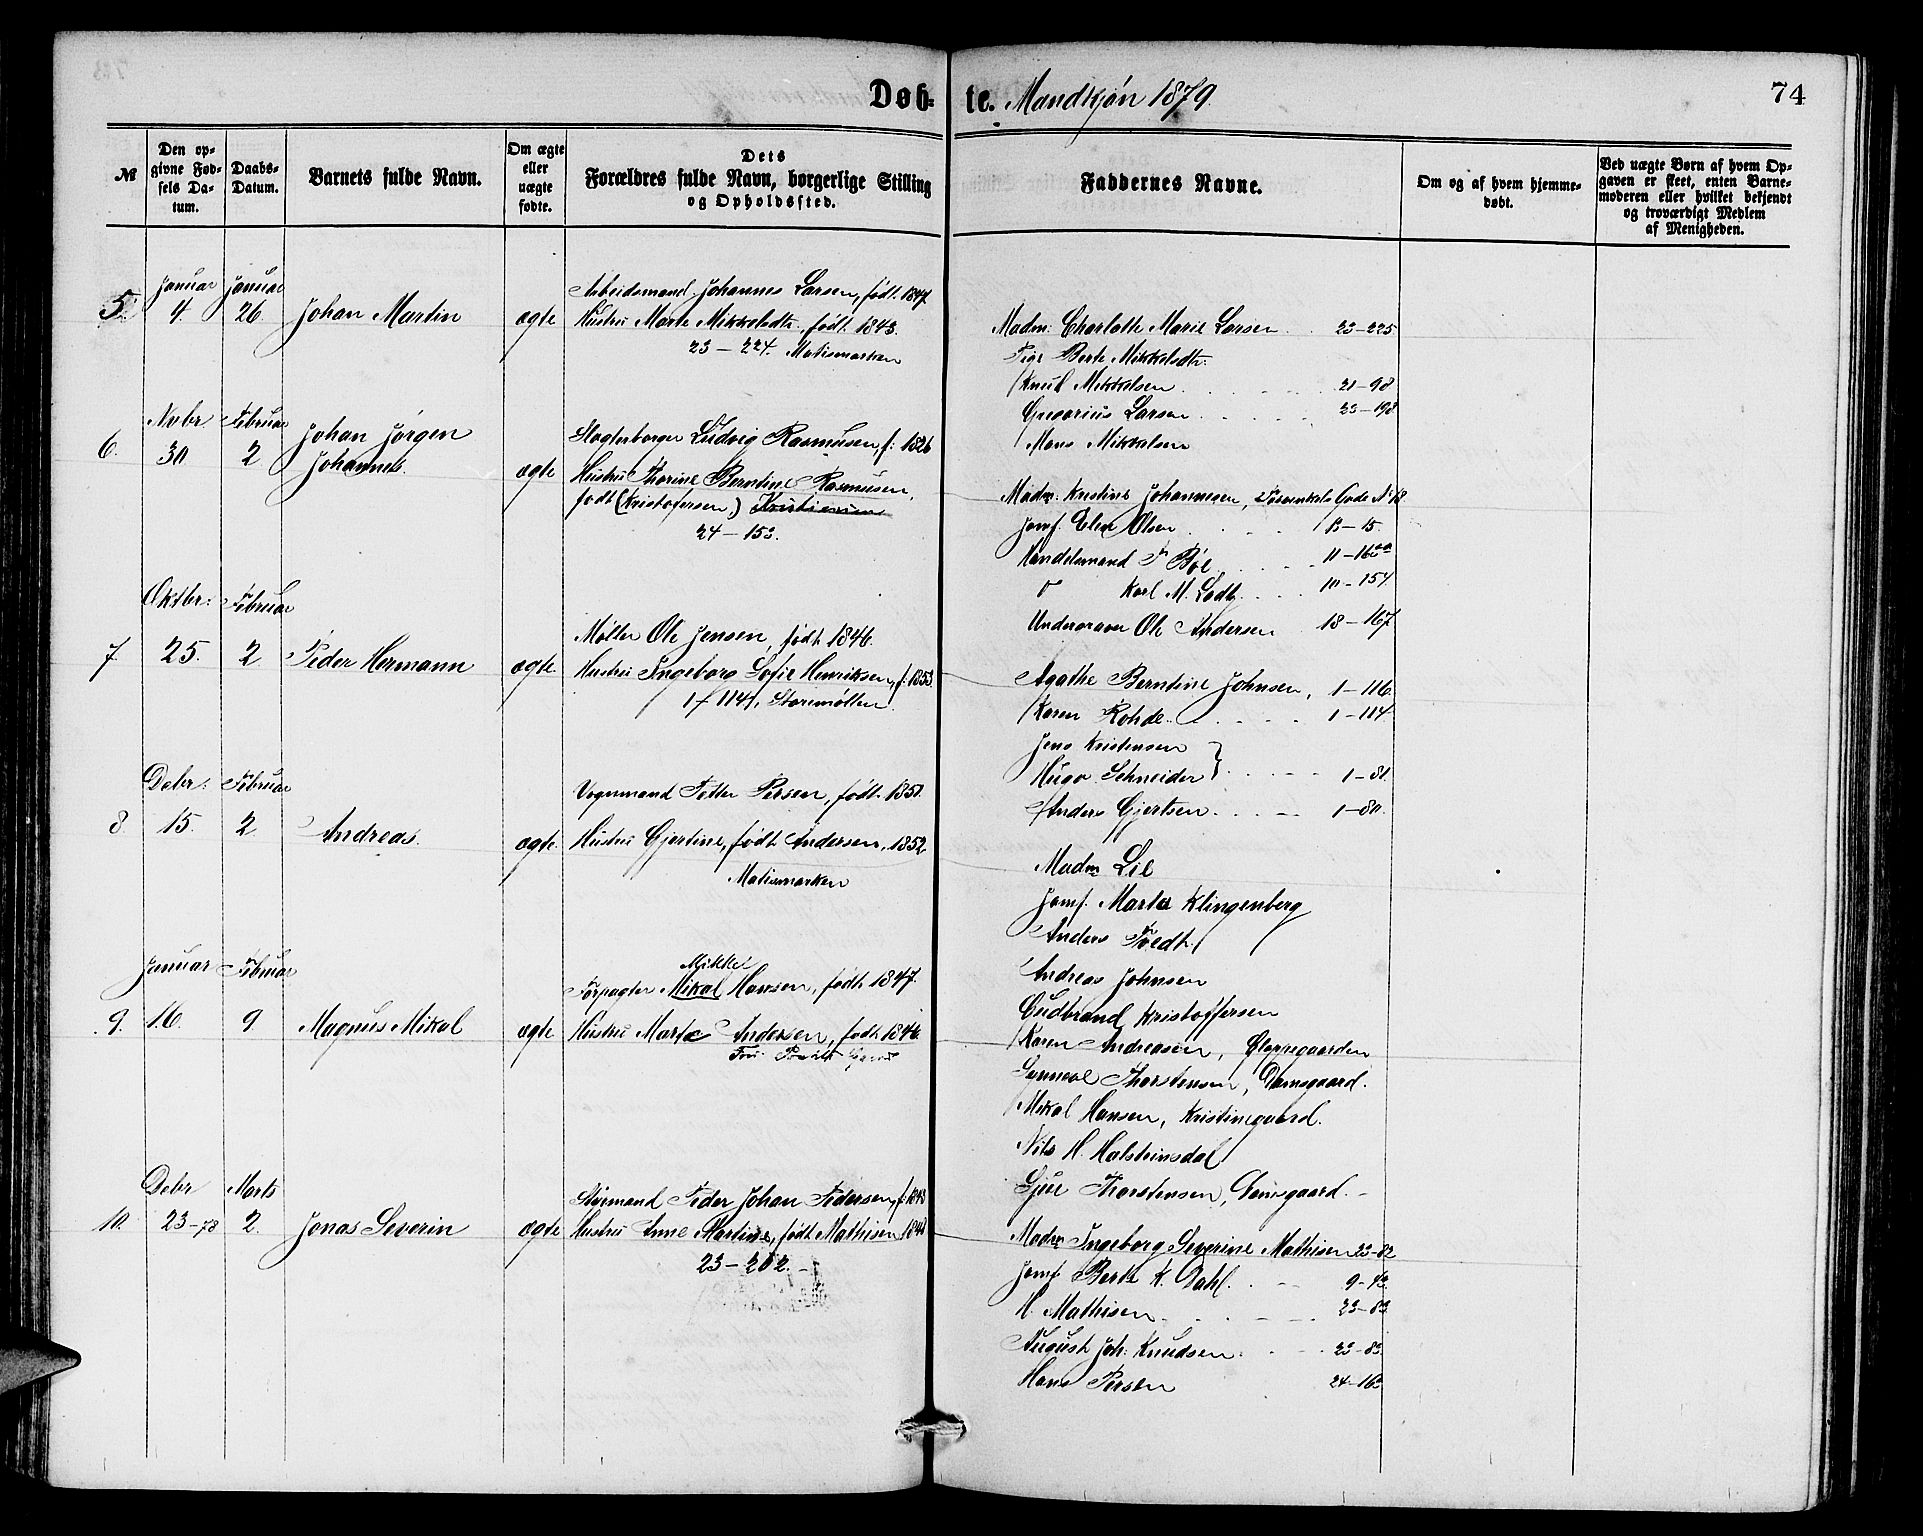 Døb-te. Mandkjøn 1879.
74
№
Den op-
givne Fød-
sels Da-
tum.
Daabs-
Datum.
Barnets fulde Navn.
Om ægte
eller
uægte
fødte.
Dets
Forældres fulde Navn, borgerlige Stilling
og Opholdssted.
Faddernes Navne.
Om og af hvem hjemme-
døbt.
Ved uægte Børn af hvem Op-
gaven er skeet, enten Barne-
moderen eller hvilket bekjendt
og troværdigt Medlem
af Menigheden.
Januar Januar
5. 4. 26. Johan Martin ægte
Arbeidsmand Johannes Larsen, født 1847.
Hustru Marte Mikkelsdtr, født 1843.
23 - 224. Matismarken
Madm: Charlotte Marie Larsen 23-225
Pige Berte Mikkelsdtr:
Knud Mikkelsen 21-98
Gregorius Larsen 23-198
Mons Mikkelsen
Nvbr Februar
6. 30 2 Johan Jørgen
Johannes. ægte
Slagterborger Ludvig Rasmusen, f: 1826
Hustru Thorine Berntine Rasmusen,
født (Kristofersen,)
24 - 153.
Madm: Kristine Johannesen,
Jomf. Elen Olsen 13-15.
Handelsmand F Bøe
Karl M. Lodtz 10-154
Ole Andersen 18-167
Oktbr: Februar
7 25. 2 Peder Hermann ægte
Møller Ole Jensen, født 1846.
Hustru Ingeborg Sofie Henriksen, f: 1853.
Storemøllen.
Agathe Berntine Johnsen, 1-116.
Karen Rohde. 1-114
Jens Kristensen
Hugo Schneider 1-81.
Anders Gjertsen 1-80.
Debr: Februar
8. 15. 2 Andreas. ægte
Vognmand Petter Persen, født 1851.
Hustru Gjertine, født Andersen, 1852
Matismarken
Madm Lie
Jomf. Marta Klingenberg
Anders Tvedt
Andreas Johnsen
Gudbrand Kristoffersen
Januar Februar
9. 16. 9 Magnus Mikal ægte
Mikkel
Forpagter Mikal Hansen, født 1847.
Hustru Marte Andersen, født 1846.
Karen Andreasen,
Synneve Thorstensen, Damsgaard.
Mikal Hansen, Kristinegaard.
Nils H. Halsteinsdal
Gjøe Thorstensen, Damsgaard.
Debr Marts
10. 23-78 2. Jonas Severin ægte
Styrmand Peder Johan Pedersen, f: 1843
Hustru Anne Martine, født Mathisen 1848
23 - 202.
Madm Ingeborg Severine Mathisen 23-82
Jomf Berte K. Dahl. 9-43.
H. Mathisen 23-83.
August Joh: Knudsen. 23-83.
Hans Persen 24-163